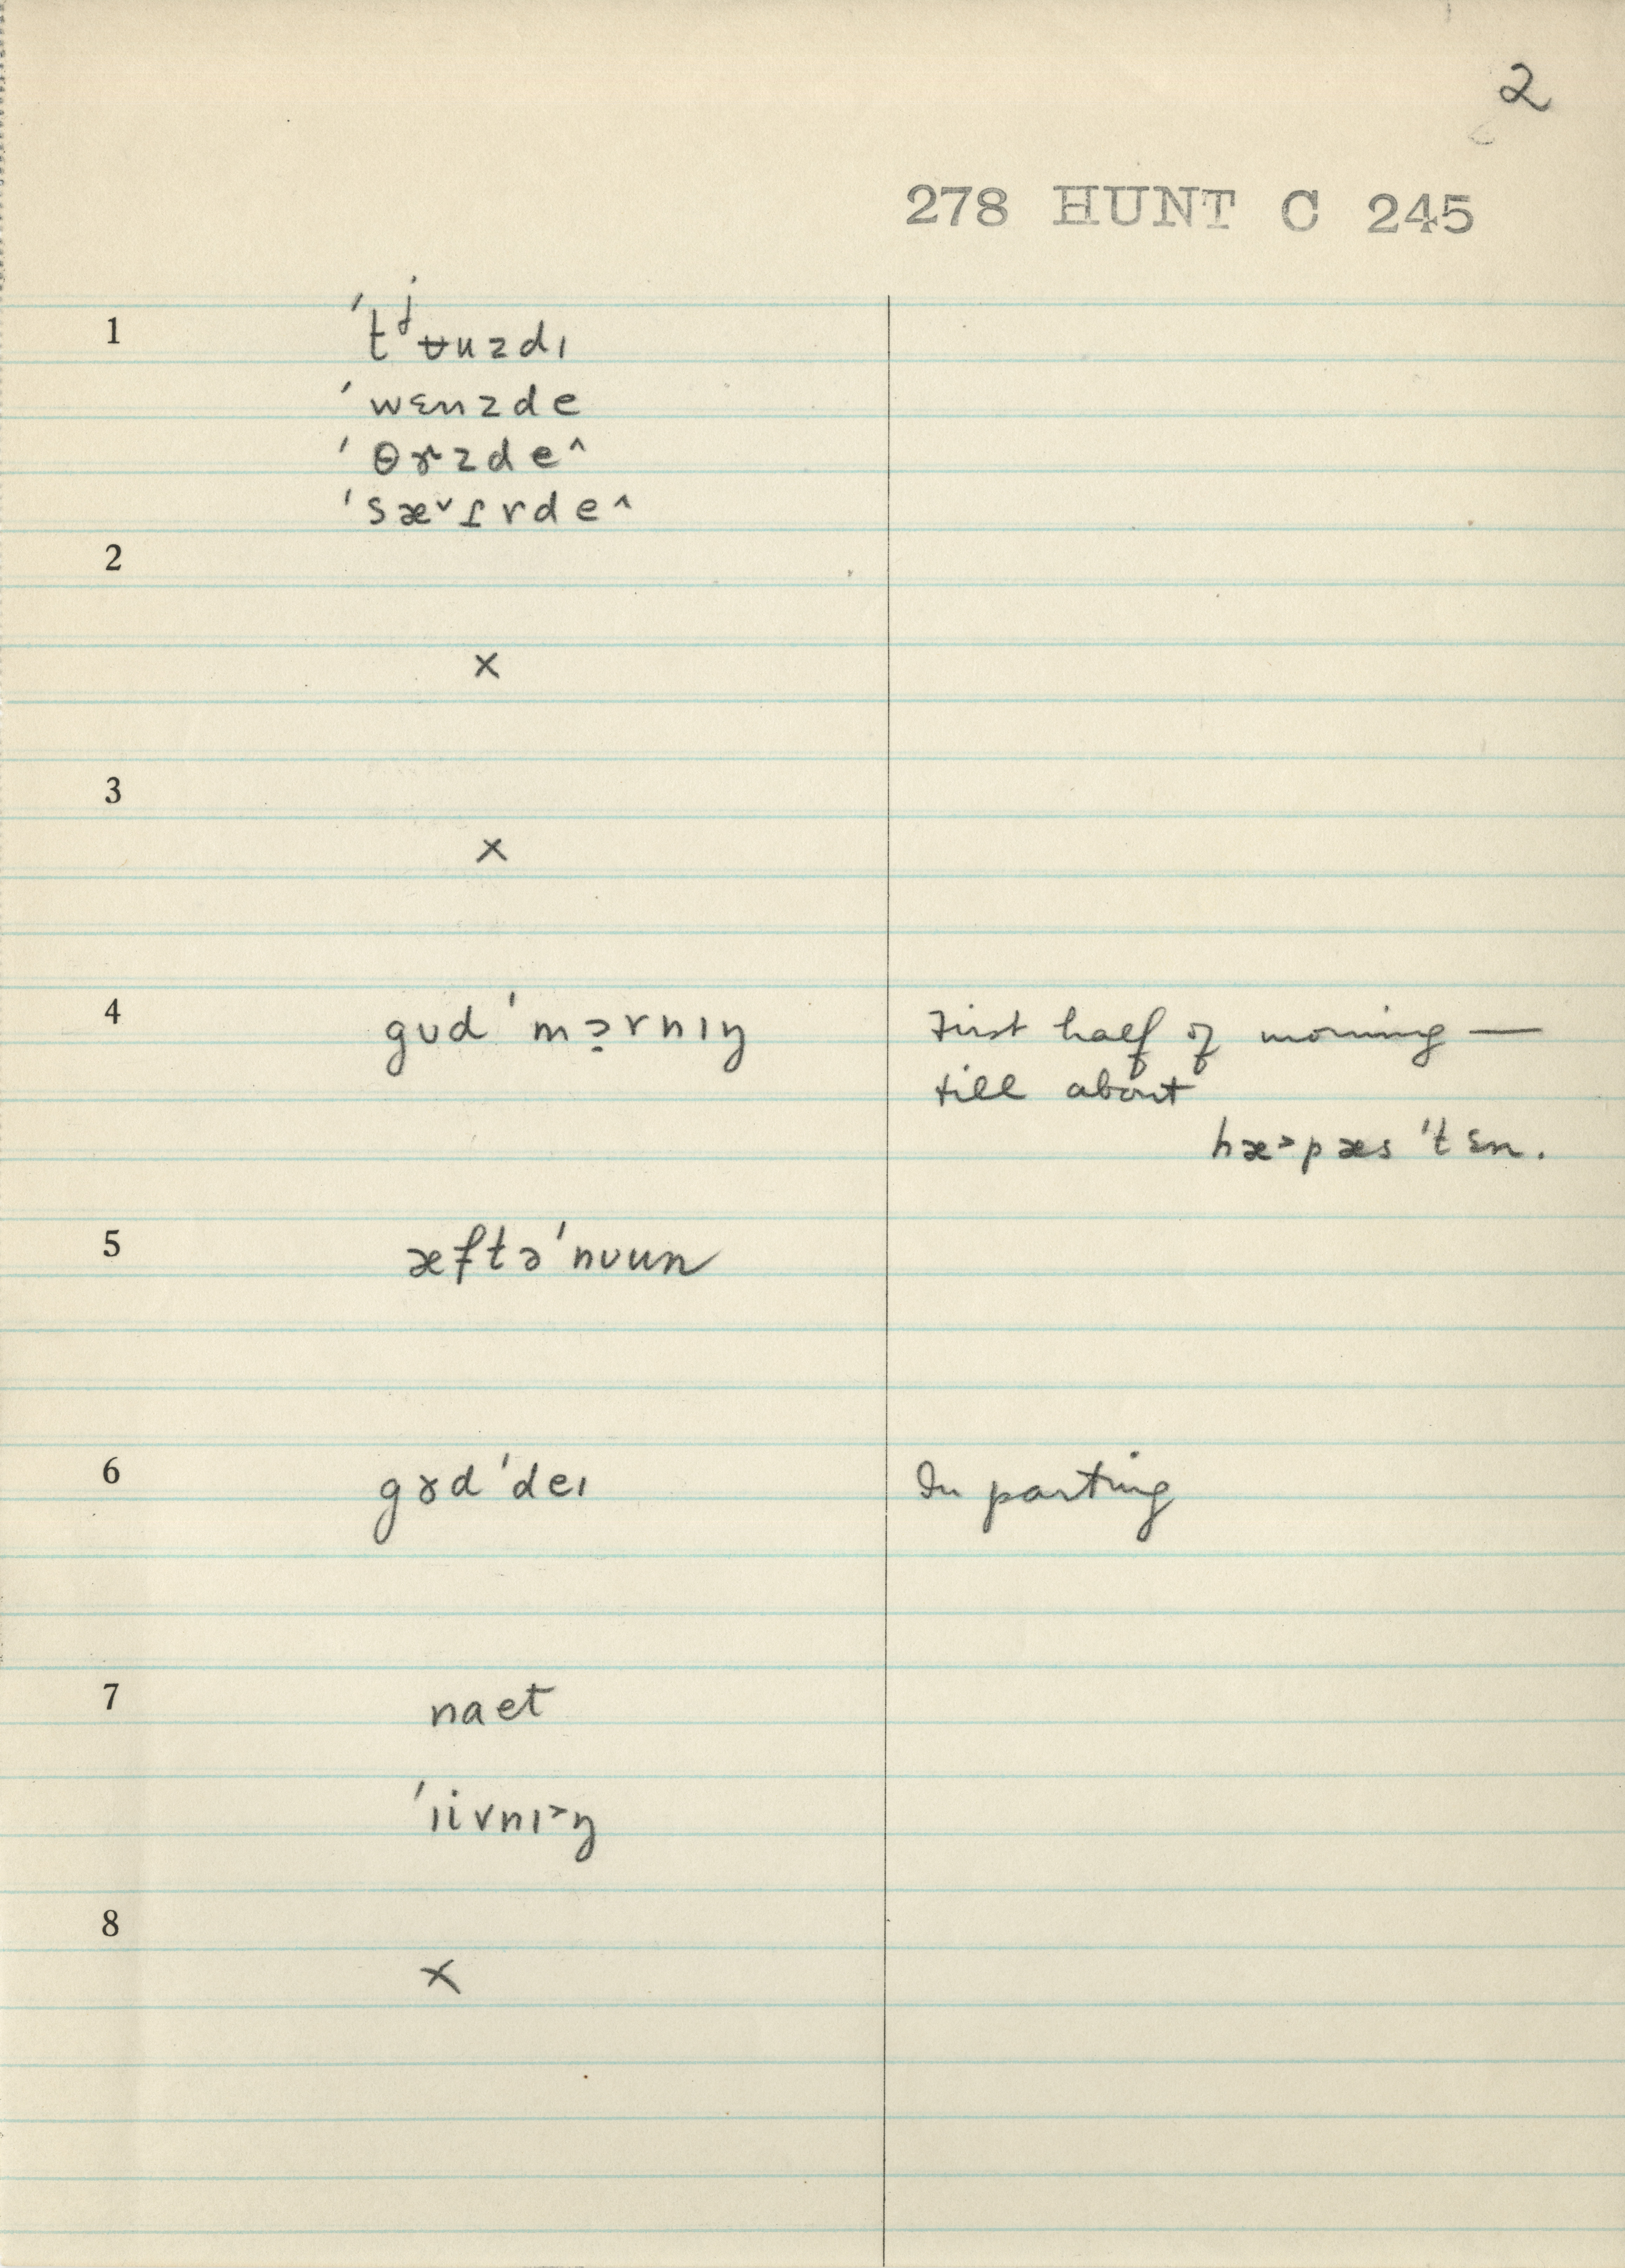 2
278 HUNT C 245
1 ˈtʲʉuzdɪ
ˈwɛnzde
ˈθɤzde^
ˈsæ˅ɾrde^
2
×
3
×
4 gʊdˈmɔ̣rnɪŋ First half of morning —
till about
hæ˃pæsˈtɛn.
5 æftəˈnʊun
6 gɤdˈdeɪ In parting
7 naet
ˈɪivnɪ˃ŋ
8
×